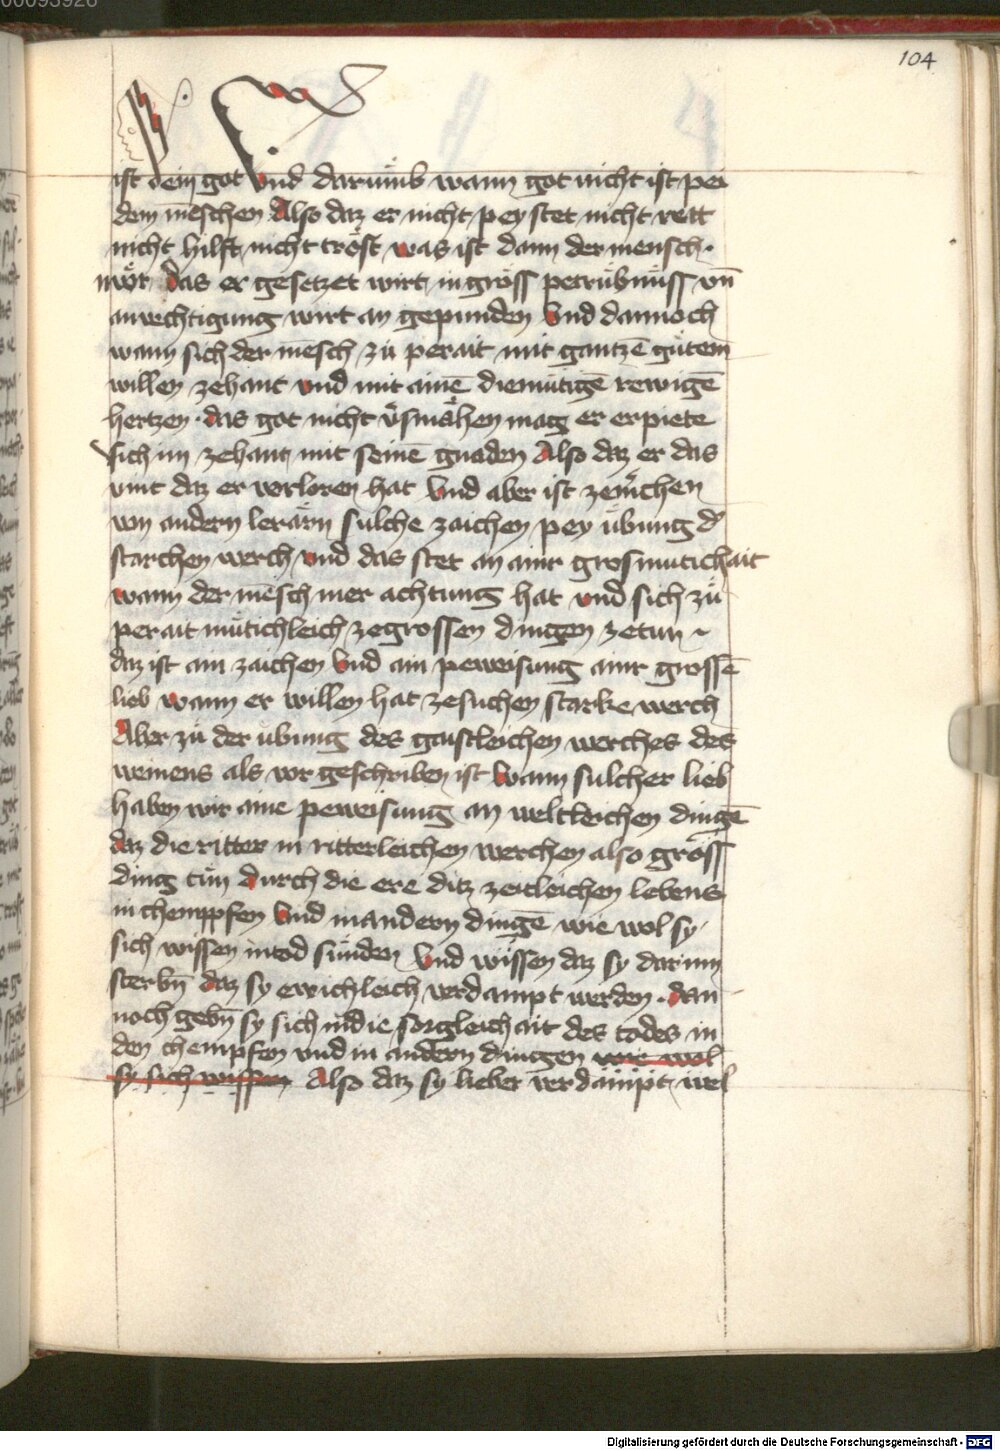 00093926
104
ist dein got vnd darumb wann got nicht ist pei
dem mēschen Also daz er nicht pey stet nicht rett
nicht hilft nicht tröst was ist dann der mensch ·
nwͦr das er gesetzet wirt in gröss petrübnüss vn̄
anvechtigung wirt an gepunden Vnd dannoch
wann sich der mēsch zu perait mit gantzē gütem̄
willen zehant vnd mit ainē diemütigē rewigē
hertzen · das got nicht v̈smähen mag er erpiete
sich im zehant mit seinē gnaden Also daz er das
vint daz er verloren hat Vnd aber ist zemͤrchen
von andern lerärn sulche zaichen pey übung dʼ
starchen werch vnd das stet an ainr grosmutichait
wann der mēsch mer achtung hat vnd sich zü
perait mütichleich ze grossen dingen zetun ~
daz ist ain zaichen Vnd ain peweisung ainr grossē
lieb wann er willen hat zesuchen starke werch
Aber zü der übung des gaistleichen werches des
weinens als vor geschriben ist Wann sulcher lieb
haben wir aine peweisung an weltleichen dingē
daz die ritter in ritterleichen werchen also gröss
ding tün durch die ere ditz zeitleichen lebens
in chemppfen Vnd in andern dingē wie wol sy
sich wissen in tod sünden Vnd wissen daz sy darinn
sterbn̄ daz sy ewichleich verdampt werden · dan
noch gebn̄ sy sich in die sorgleichait des todes in
den chempfen vnd in andern dingen wie wol
sy sich wissen Also daz sy lieber verdampt wel
Digitalisierung gefördert durch die Deutsche Forschungsgemeinschaft - DFG